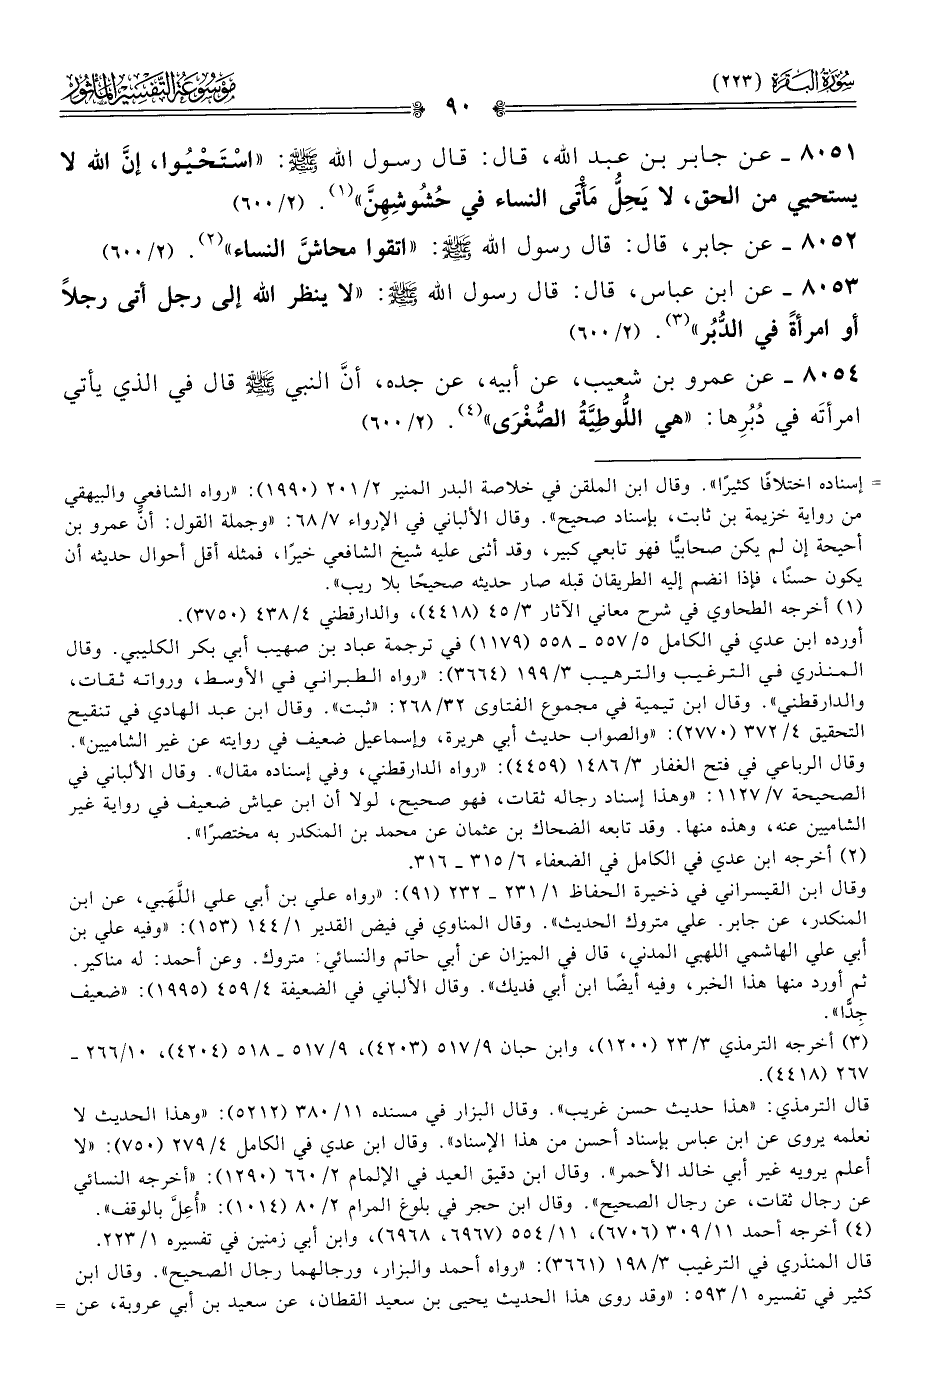 سُورَةُ البَقَرَةِ (٢٢٣)
٩٠
مَوْسُوعَةُ التَّفْسِيرِ المَأْثُورِ
٨٠٥١ ـ عن جابر بن عبد الله، قال: قال رسول الله ﷺ: «اسْتَحْيُوا، إنَّ الله لا
يستحيي من الحق، لا يَحِلُّ مَأْتَى النساء في حُشُوشِهِنَّ»(١). (٢/ ٦٠٠)
٨٠٥٢ ـ عن جابر، قال: قال رسول الله ﷺ: «اتقوا محاشَّ النساء»(٢). (٢/ ٦٠٠)
٨٠٥٣ ـ عن ابن عباس، قال: قال رسول الله ﷺ: «لا ينظر الله إلى رجل أتى رجلاً
أو امرأةً في الدُّبُر»(٣). (٢/ ٦٠٠)
٨٠٥٤ ـ عن عمرو بن شعيب، عن أبيه، عن جده، أنَّ النبي ﷺ قال في الذي يأتي
امرأتَه في دُبُرِها: «هي اللُّوطِيَّةُ الصُّغْرَى»(٤). (٢/ ٦٠٠)
= إسناده اختلافًا كثيرًا». وقال ابن الملقن في خلاصة البدر المنير ٢/ ٢٠١ (١٩٩٠): «رواه الشافعي والبيهقي
من رواية خزيمة بن ثابت، بإسناد صحيح». وقال الألباني في الإرواء ٧/ ٦٨: «وجملة القول: أنَّ عمرو بن
أحيحة إن لم يكن صحابيًّا فهو تابعي كبير، وقد أثنى عليه شيخ الشافعي خيرًا، فمثله أقل أحوال حديثه أن
يكون حسنًا، فإذا انضم إليه الطريقان قبله صار حديثه صحيحًا بلا ريب».
(١) أخرجه الطحاوي في شرح معاني الآثار ٣/ ٤٥ (٤٤١٨)، والدارقطني ٤/ ٤٣٨ (٣٧٥٠).
أورده ابن عدي في الكامل ٥/ ٥٥٧ ـ ٥٥٨ (١١٧٩) في ترجمة عباد بن صهيب أبي بكر الكليبي. وقال
المنذري في الترغيب والترهيب ٣/ ١٩٩ (٣٦٦٤): «رواه الطبراني في الأوسط، ورواته ثقات،
والدارقطني». وقال ابن تيمية في مجموع الفتاوى ٣٢/ ٢٦٨: «ثبت». وقال ابن عبد الهادي في تنقيح
التحقيق ٤/ ٣٧٢ (٢٧٧٠): «والصواب حديث أبي هريرة، وإسماعيل ضعيف في روايته عن غير الشاميين».
وقال الرباعي في فتح الغفار ٣/ ١٤٨٦ (٤٤٥٩): «رواه الدارقطني، وفي إسناده مقال». وقال الألباني في
الصحيحة ٧/ ١١٢٧: «وهذا إسناد رجاله ثقات، فهو صحيح، لولا أن ابن عياش ضعيف في رواية غير
الشاميين عنه، وهذه منها. وقد تابعه الضحاك بن عثمان عن محمد بن المنكدر به مختصرًا».
(٢) أخرجه ابن عدي في الكامل في الضعفاء ٦/ ٣١٥ ـ ٣١٦.
وقال ابن القيسراني في ذخيرة الحفاظ ١/ ٢٣١ ـ ٢٣٢ (٩١): «رواه علي بن أبي علي اللَّهَبي، عن ابن
المنكدر، عن جابر. علي متروك الحديث». وقال المناوي في فيض القدير ١/ ١٤٤ (١٥٣): «وفيه علي بن
أبي علي الهاشمي اللهبي المدني، قال في الميزان عن أبي حاتم والنسائي: متروك. وعن أحمد: له مناكير.
ثم أورد منها هذا الخبر، وفيه أيضًا ابن أبي فديك». وقال الألباني في الضعيفة ٤/ ٤٥٩ (١٩٩٥): «ضعيف
جِدًّا».
(٣) أخرجه الترمذي ٣/ ٢٣ (١٢٠٠)، وابن حبان ٩/ ٥١٧ (٤٢٠٣)، ٩/ ٥١٧ ـ ٥١٨ (٤٢٠٤)، ١٠/ ٢٦٦ ـ
٢٦٧ (٤٤١٨).
قال الترمذي: «هذا حديث حسن غريب». وقال البزار في مسنده ١١/ ٣٨٠ (٥٢١٢): «وهذا الحديث لا
نعلمه يروى عن ابن عباس بإسناد أحسن من هذا الإسناد». وقال ابن عدي في الكامل ٤/ ٢٧٩ (٧٥٠): «لا
أعلم يرويه غير أبي خالد الأحمر». وقال ابن دقيق العيد في الإلمام ٢/ ٦٦٠ (١٢٩٠): «أخرجه النسائي
عن رجال ثقات، عن رجال الصحيح». وقال ابن حجر في بلوغ المرام ٢/ ٨٠ (١٠١٤): «أُعِلَّ بالوقف».
(٤) أخرجه أحمد ١١/ ٣٠٩ (٦٧٠٦)، ١١/ ٥٥٤ (٦٩٦٧، ٦٩٦٨)، وابن أبي زمنين في تفسيره ١/ ٢٢٣.
قال المنذري في الترغيب ٣/ ١٩٨ (٣٦٦١): «رواه أحمد والبزار، ورجالهما رجال الصحيح». وقال ابن
كثير في تفسيره ١/ ٥٩٣: «وقد روى هذا الحديث يحيى بن سعيد القطان، عن سعيد بن أبي عروبة، عن =